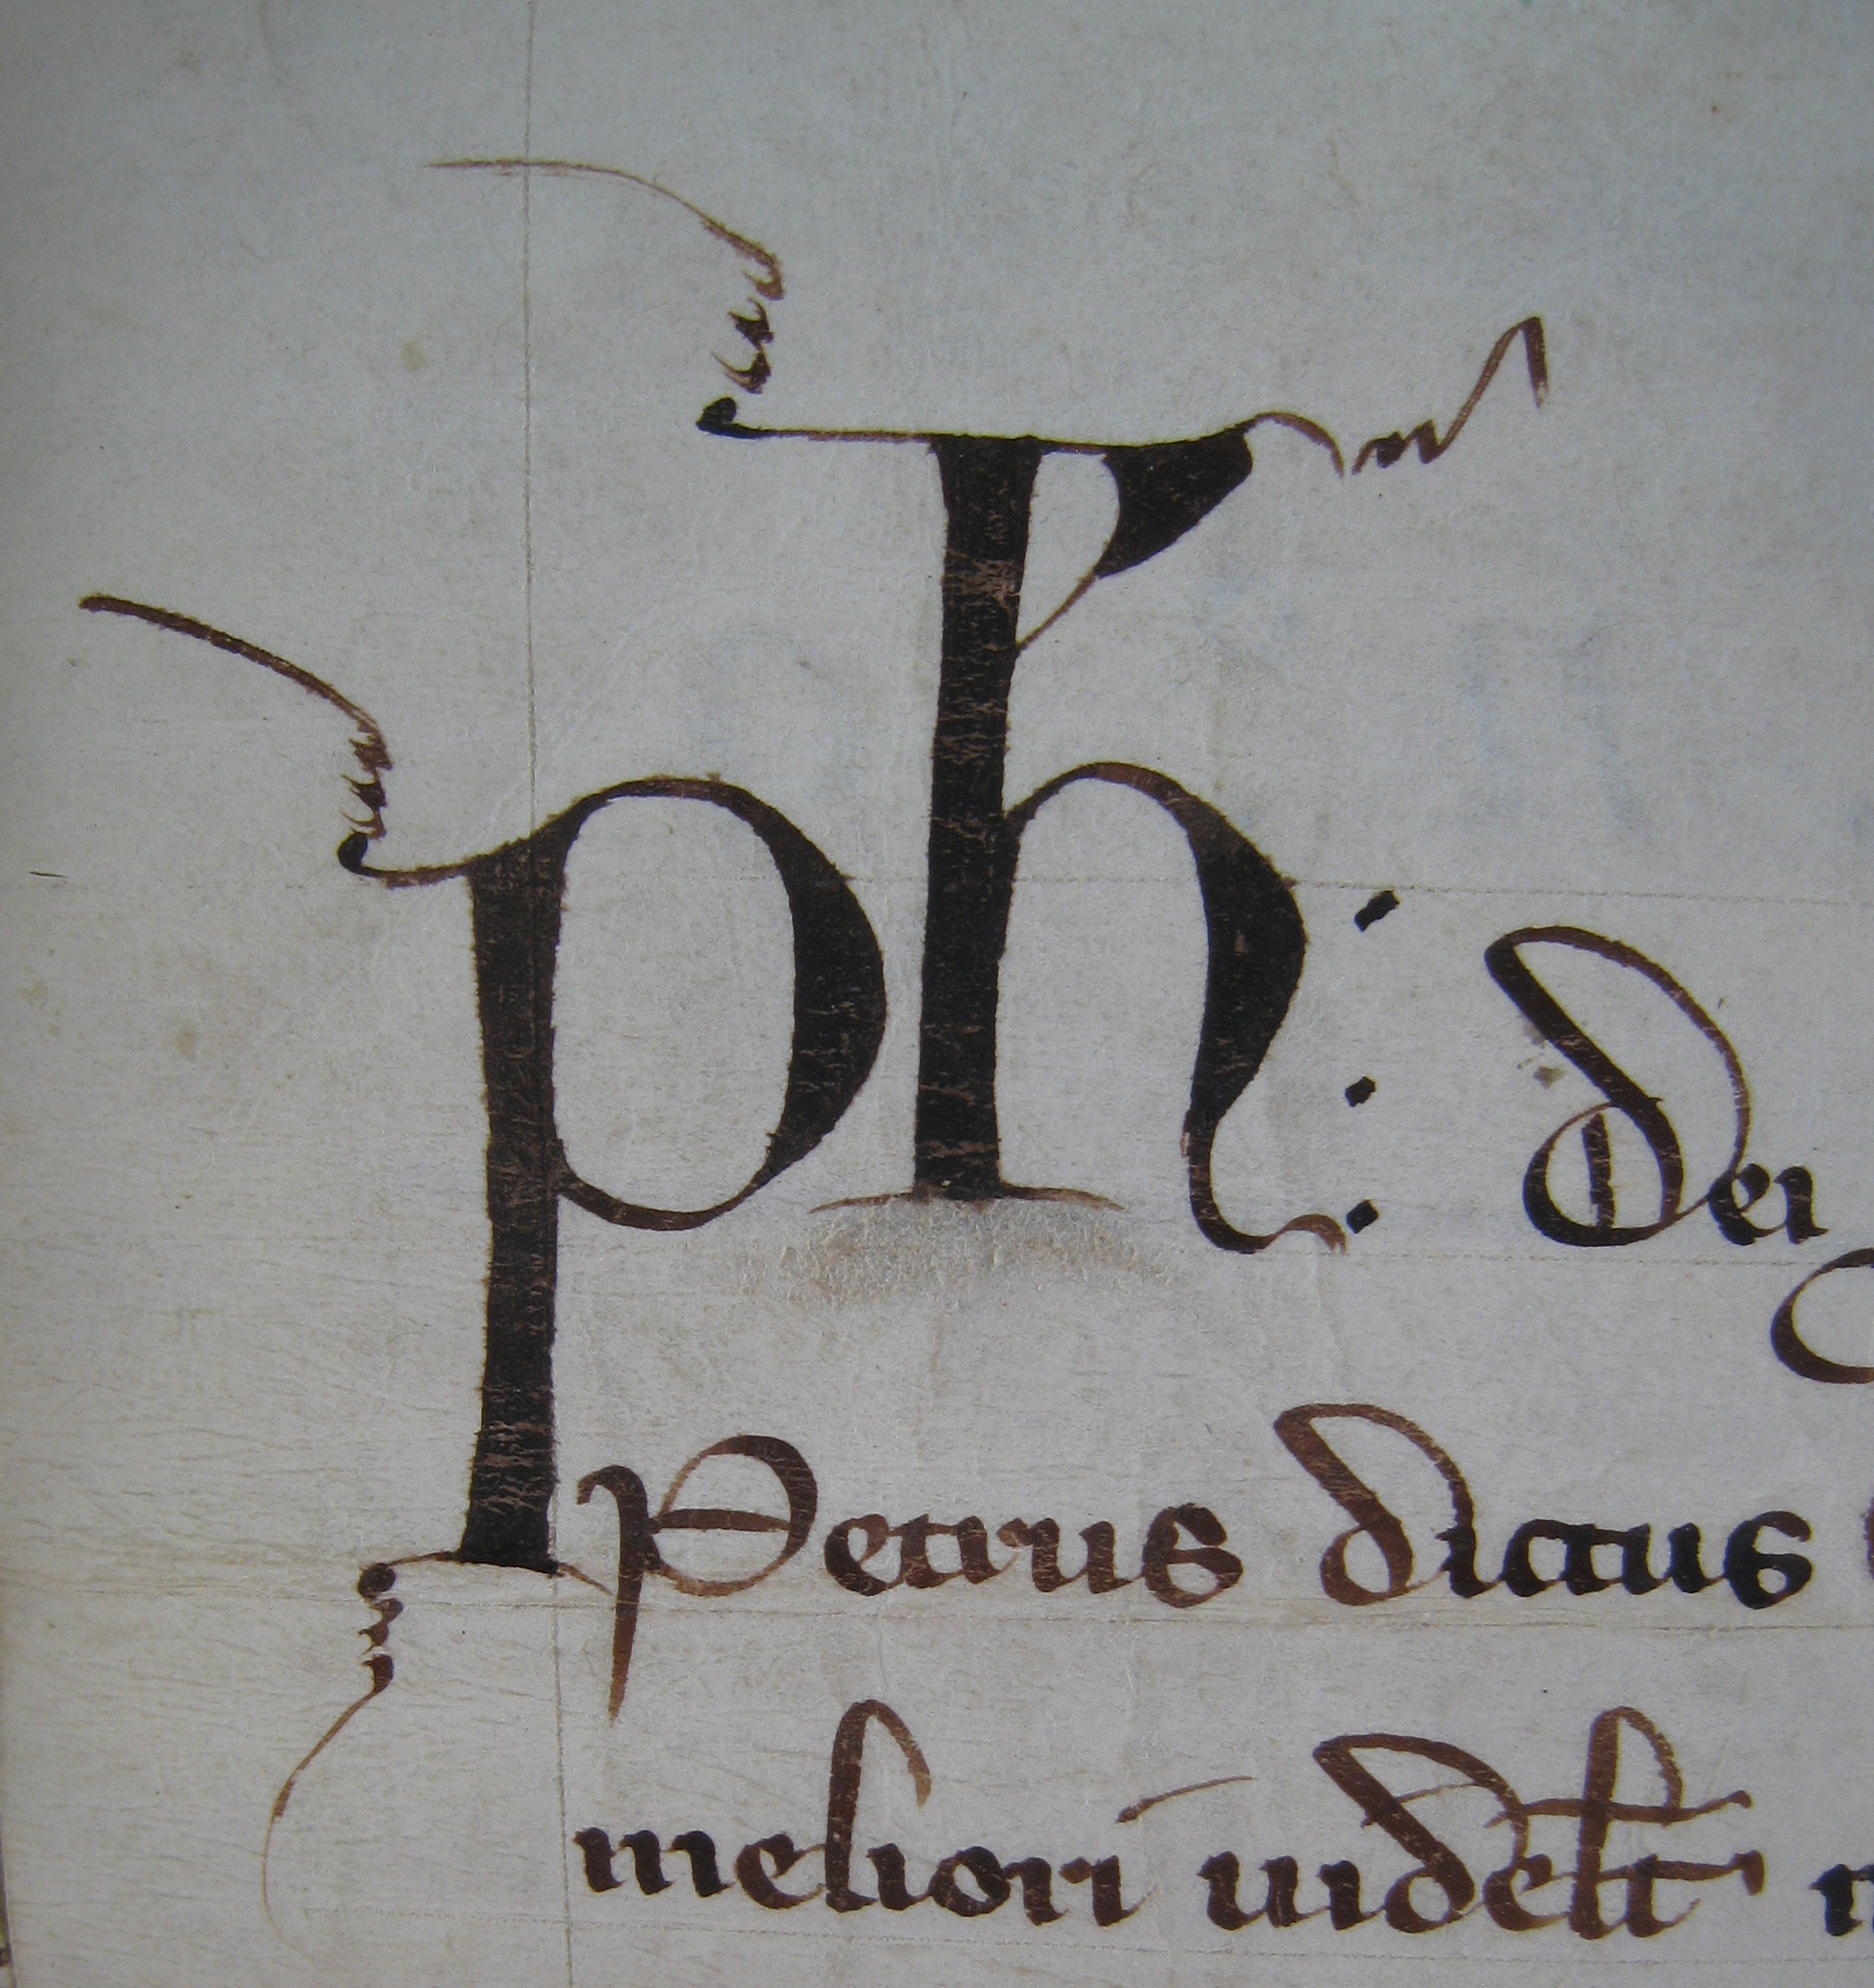 ph: dei
Petrus dictus
meliori uidelt